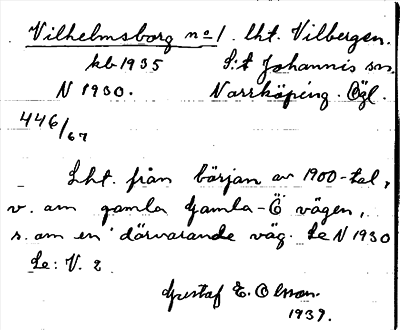 Vilhelmsborg nº 1. lht. Vilbergen.
kb 1935 S:t Johannis sn.
N 1930. Norrköping. Ögl.
446/67
Lht. från början av 1900-tal,
v. om gamla Gamla-Ö vägen,
s. om en därvarande väg. Le N 1930
Le: V. 2
Gustaf E. Olsson.
1937.